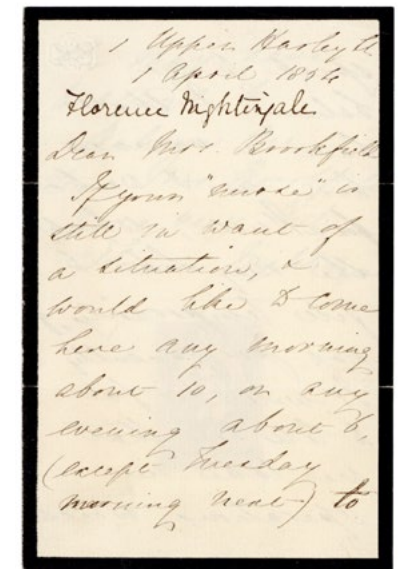 1 Upper Harley St
1 April 1854
Florence Nightingale
Dear Mrs. Brookfield
If your "nurse" is
still in want of
a situation, &
would like to come
here any morning
about 10, or any
evening about 6,
(except Tuesday
morning next) to